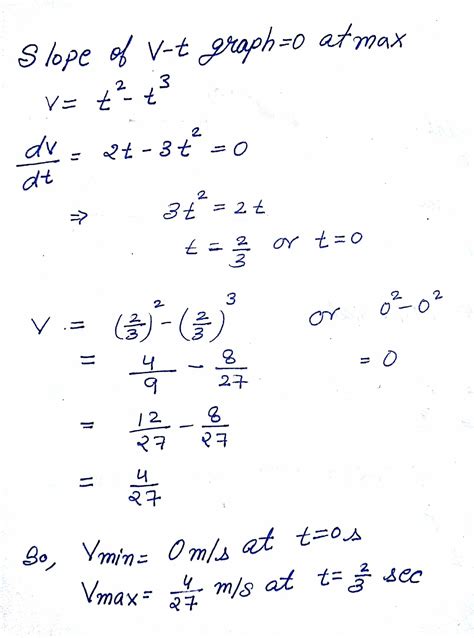 Slope of V-t graph=0 at max
V= t²-t³
dv/dt = 2t-3t² = 0
⇒ 3t² = 2t
t = 2/3 or t=0
V = (2/3)² - (2/3)³ or 0²-0²
= 4/9 - 8/27 = 0
= 12/27 - 8/27
= 4/27
So, Vmin= 0m/s at t=0s
Vmax= 4/27 m/s at t= 2/3 sec